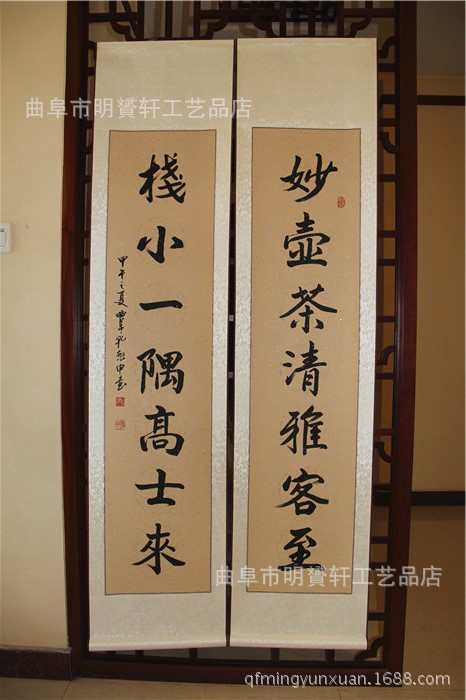 曲阜市明贇轩工艺品店
妙壶茶清雅客至
棧小一隅髙士來
甲午之夏曲阜孔申書
曲阜市明贇轩工艺品店
qfmingyunxuan.1688.com